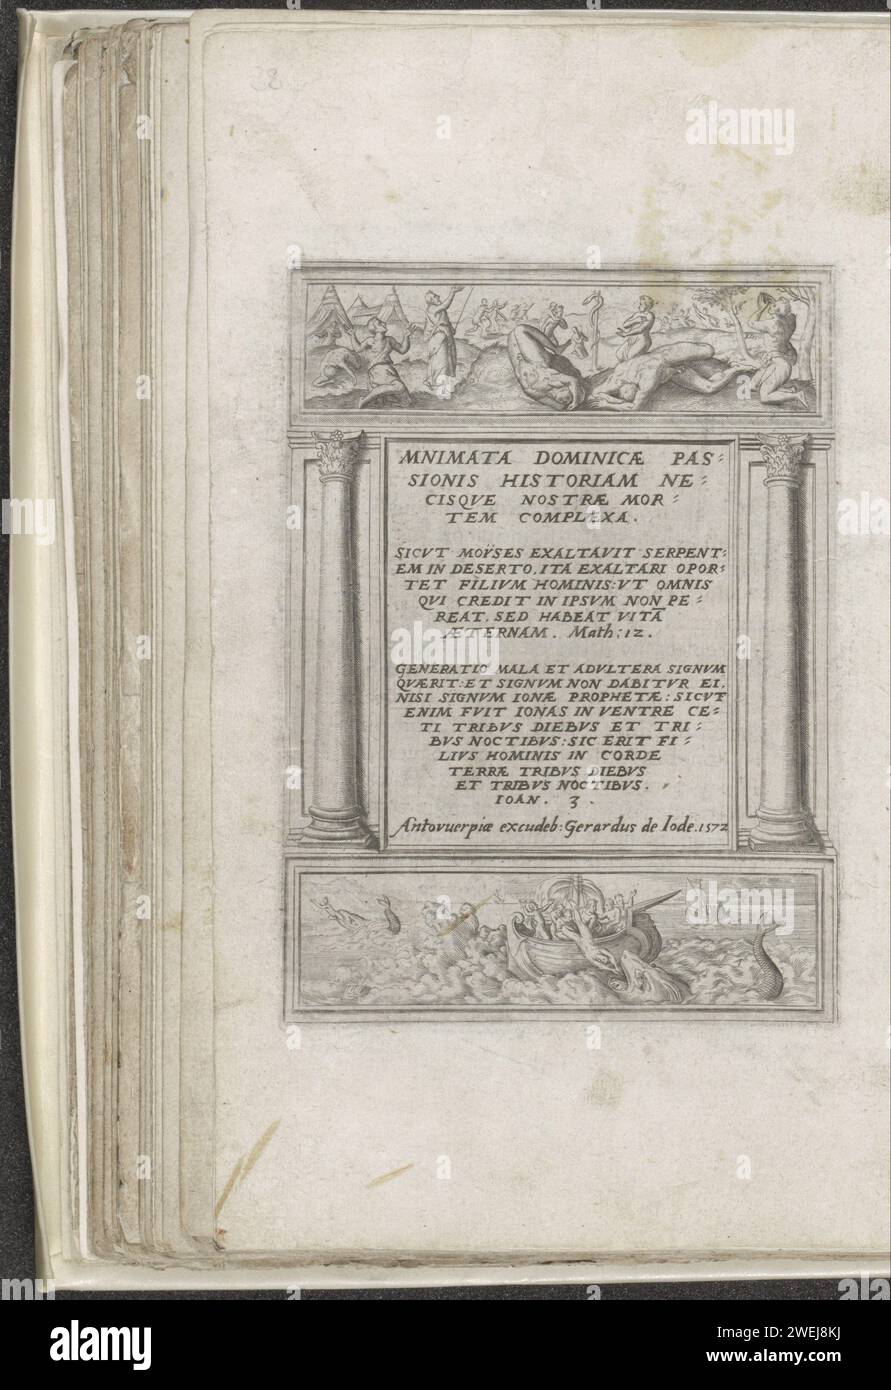 38
MNIMATA DOMINICÆ PAS⸗
SIONIS HISTORIAM NE⸗
CISQVE NOSTRÆ MOR⸗
TEM COMPLEXA.
SICVT MOÿSES EXALTAVIT SERPENT⸗
EM IN DESERTO, ITA EXALTARI OPOR⸗
TET FILIVM HOMINIS: VT OMNIS
QVI CREDIT IN IPSVM NON PE⸗
REAT. SED HABEAT VITĀ
ÆTERNAM. Math: 12.
GENERATIO MALA ET ADVLTERA SIGNVM
QVÆRIT: ET SIGNVM NON DABITVR EI.
NISI SIGNVM IONÆ PROPHETÆ: SICVT
ENIM FVIT IONAS IN VENTRE CE⸗
TI TRIBVS DIEBVS ET TRI⸗
BVS NOCTIBVS: SIC ERIT FI⸗
LIVS HOMINIS IN CORDE
TERRÆ TRIBVS DIEBVS
ET TRIBVS NOCTIBVS.
IOAN. 3.
Antovuerpiæ excudeb: Gerardus de Iode. 1572
alamy
Image ID: 2WEJ8KJ
www.alamy.com